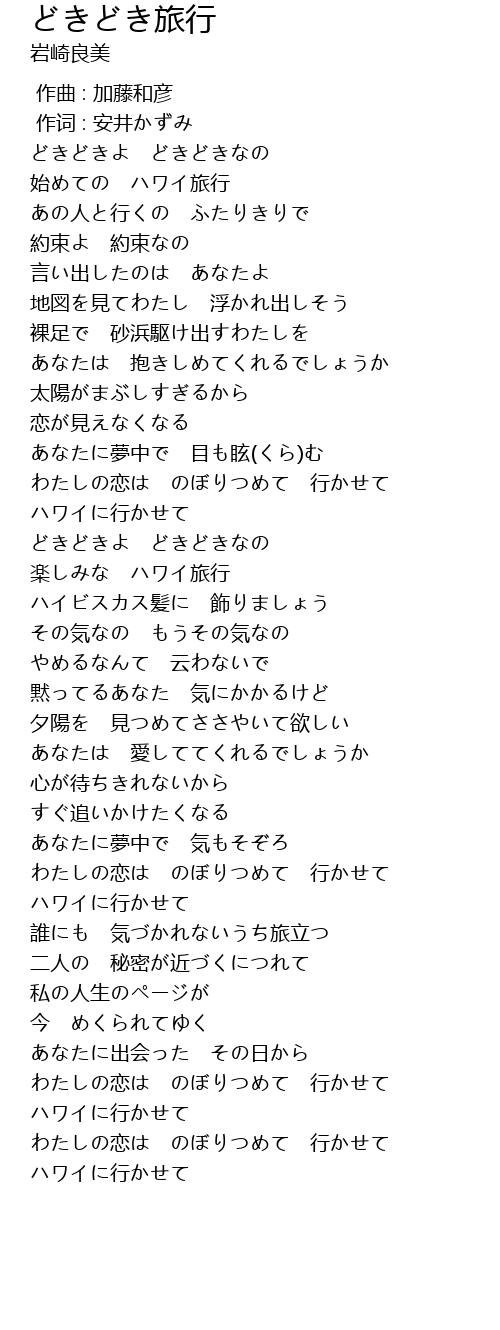 どきどき旅行
岩崎良美
作曲 : 加藤和彦
作词 : 安井かずみ
どきどきよ　どきどきなの
始めての　ハワイ旅行
あの人と行くの　ふたりきりで
約束よ　約束なの
言い出したのは　あなたよ
地図を見てわたし　浮かれ出しそう
裸足で　砂浜駆け出すわたしを
あなたは　抱きしめてくれるでしょうか
太陽がまぶしすぎるから
恋が見えなくなる
あなたに夢中で　目も眩(くら)む
わたしの恋は　のぼりつめて　行かせて
ハワイに行かせて
どきどきよ　どきどきなの
楽しみな　ハワイ旅行
ハイビスカス髪に　飾りましょう
その気なの　もうその気なの
やめるなんて　云わないで
黙ってるあなた　気にかかるけど
夕陽を　見つめてささやいて欲しい
あなたは　愛しててくれるでしょうか
心が待ちきれないから
すぐ追いかけたくなる
あなたに夢中で　気もそぞろ
わたしの恋は　のぼりつめて　行かせて
ハワイに行かせて
誰にも　気づかれないうち旅立つ
二人の　秘密が近づくにつれて
私の人生のページが
今　めくられてゆく
あなたに出会った　その日から
わたしの恋は　のぼりつめて　行かせて
ハワイに行かせて
わたしの恋は　のぼりつめて　行かせて
ハワイに行かせて